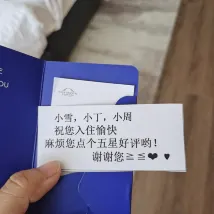 小雪，小丁，小周
祝您入住愉快
麻烦您点个五星好评哟！
谢谢您≧≦❤♥
OU